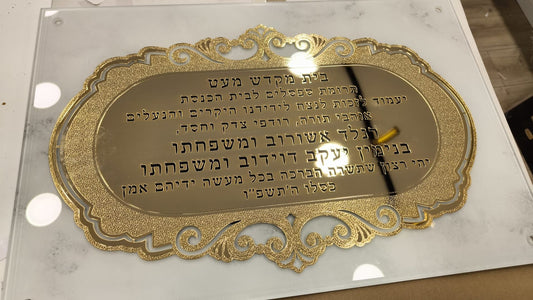 בית מקדש מעט
תרומת ספסלים לבית הכנסת
יעמוד לזכות לנצח לידידנו היקרים והנעלים
אוהבי תורה, רודפי צדק וחסד,
רנלד אשורוב ומשפחתו
בנימין יעקב דוידוב ומשפחתו
יהי רצון שתשרה הברכה בכל מעשה ידיהם אמן
כסלו ה'תשפ"ו